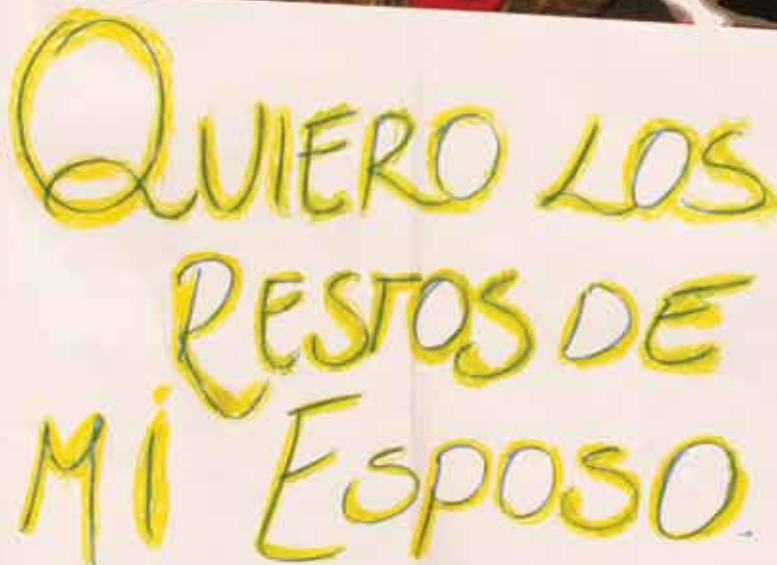 QUIERO LOS
RESTOS DE
Mi EsPOSO